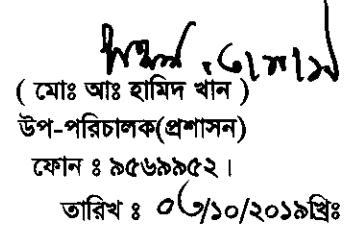 ( মোঃ আঃ হামিদ খান )
উপ-পরিচালক(প্রশাসন)
ফোন ঃ ৯৫৬৯৯৫২।
তারিখ ঃ ০৩/১০/২০১৯খ্রিঃ